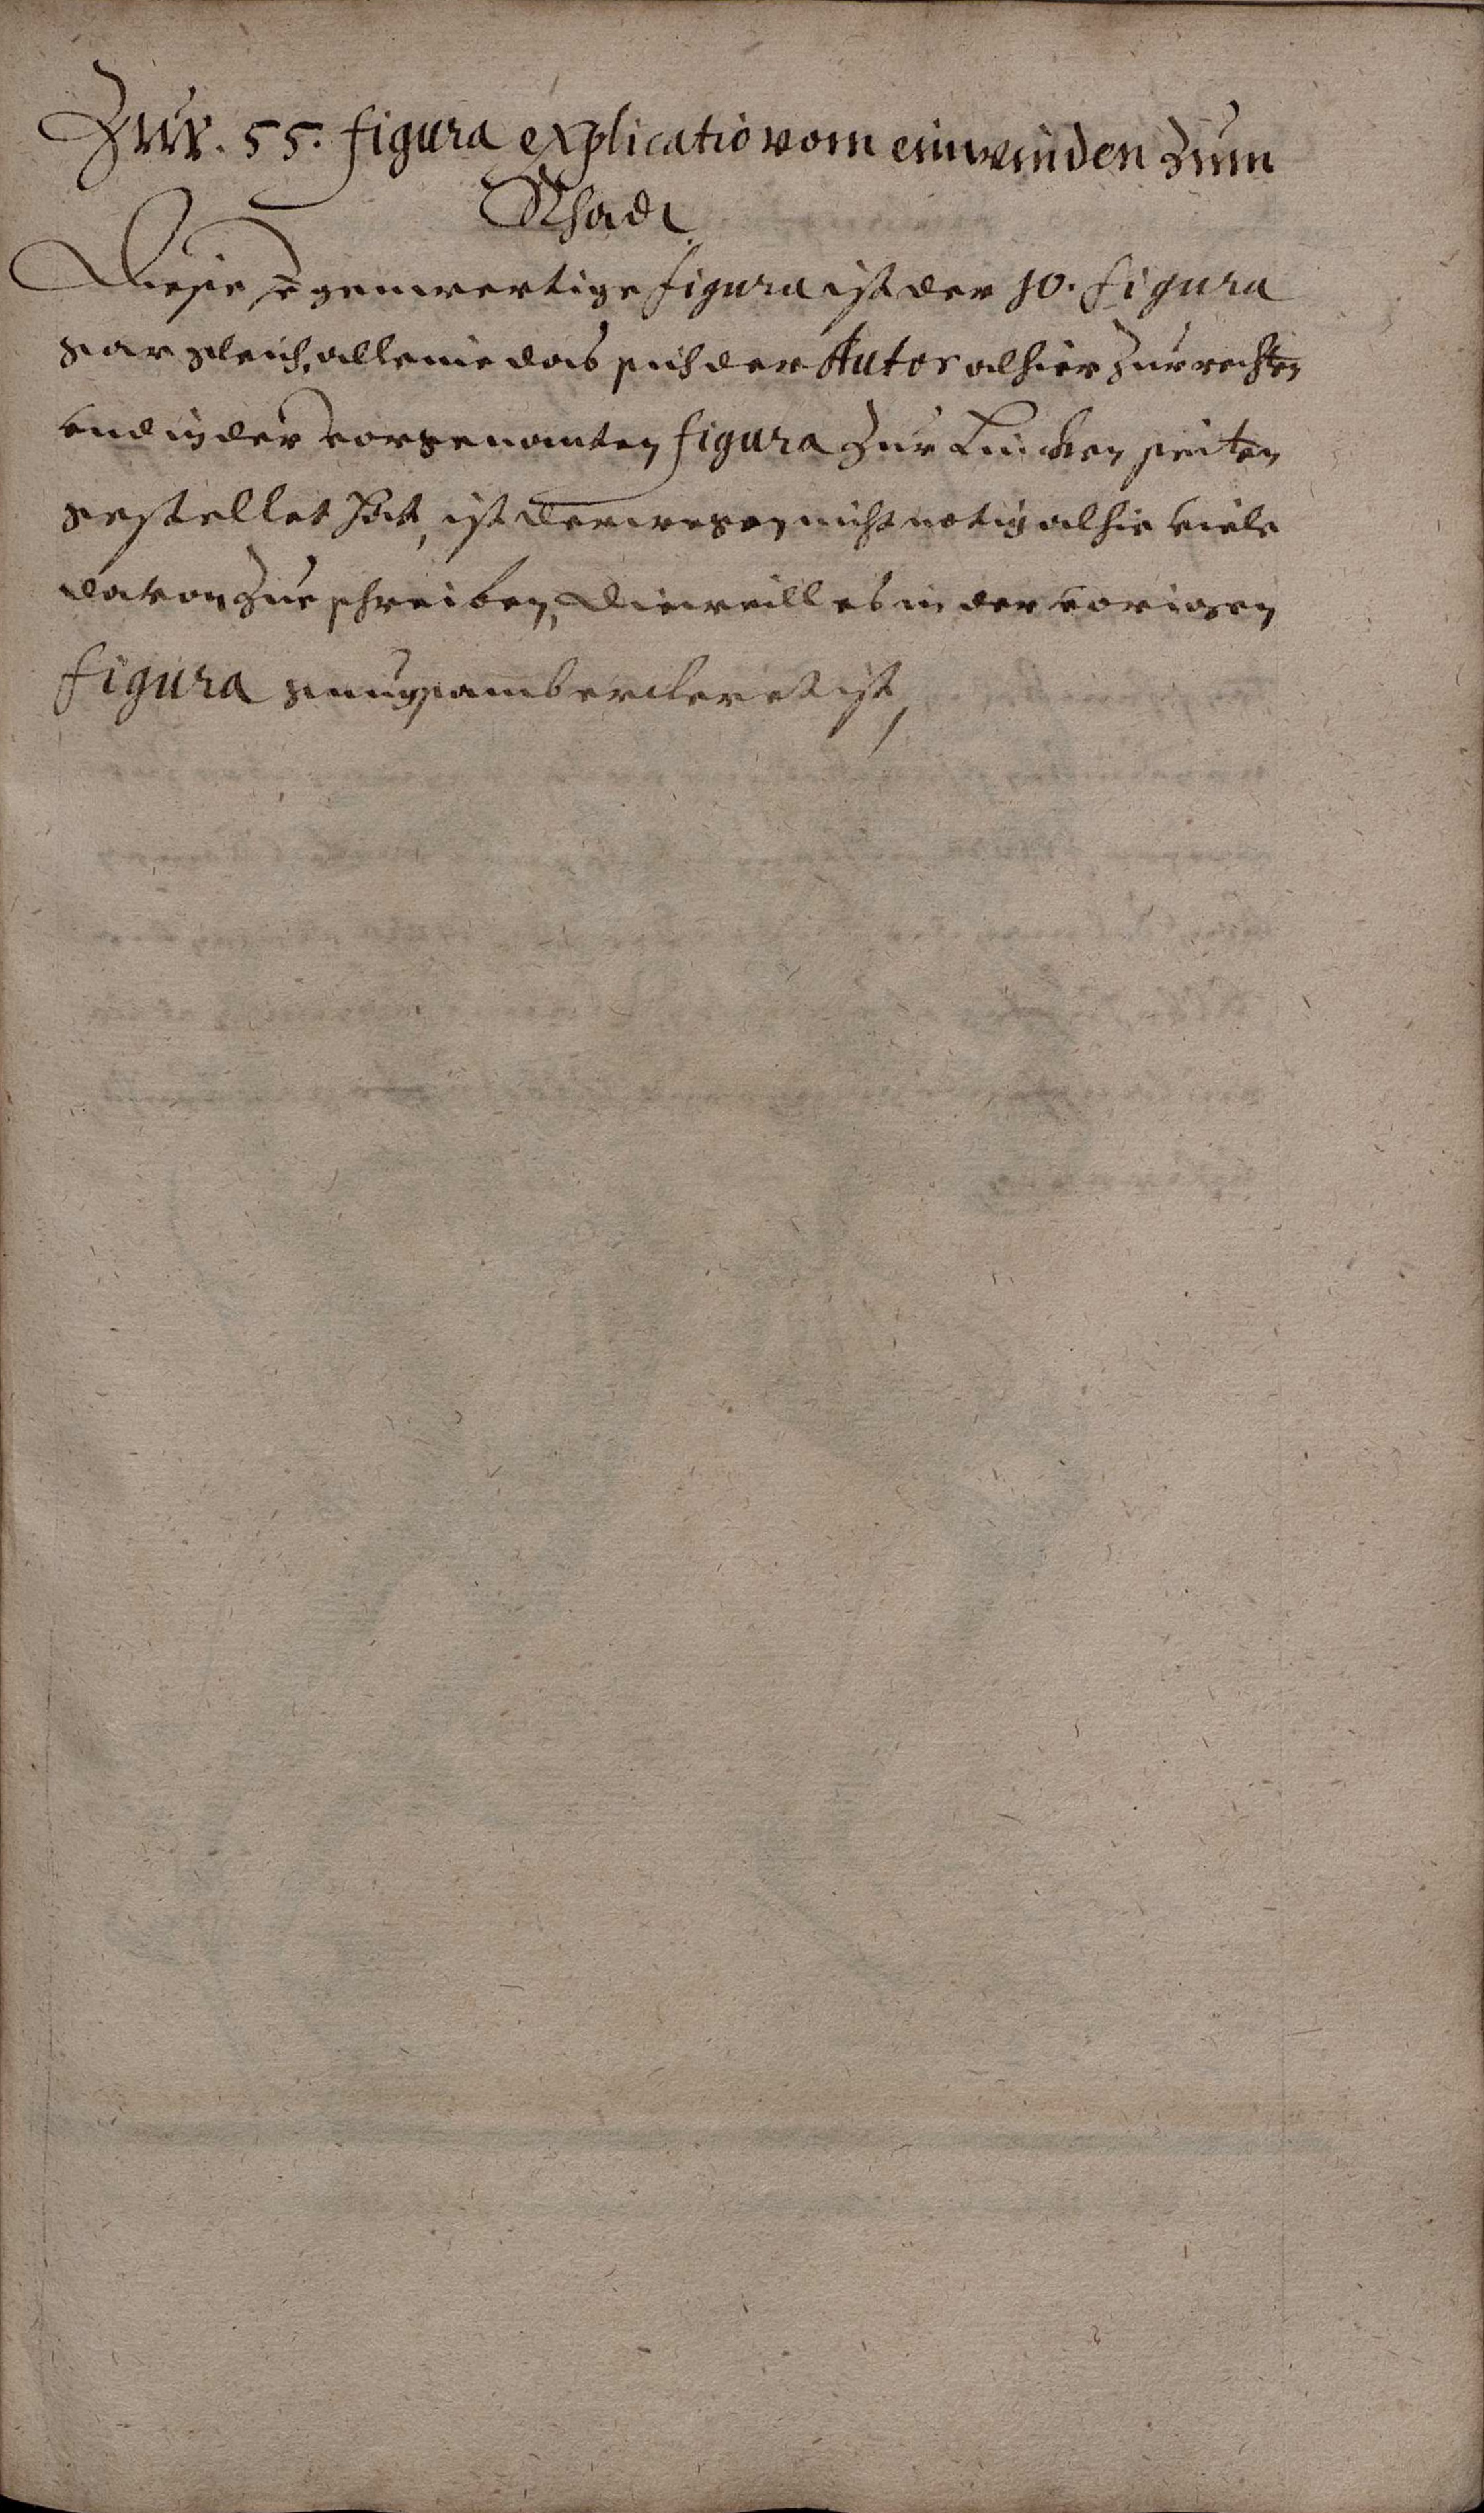 Zur. 55. figura explicatio vom einwinden zum
Rhadt
Diese gegenwertige figura ist der 10. figura
gar gleich, alleine das sich der Autor alhier zur rechten
vnd in der vorgenanten figura zur Lincken seiten
gestellet hat, ist derwegen nicht notig alhie viele
davon zue schreiben, Dieweill es in der vorigen
figura gnugsamb ercleret ist,